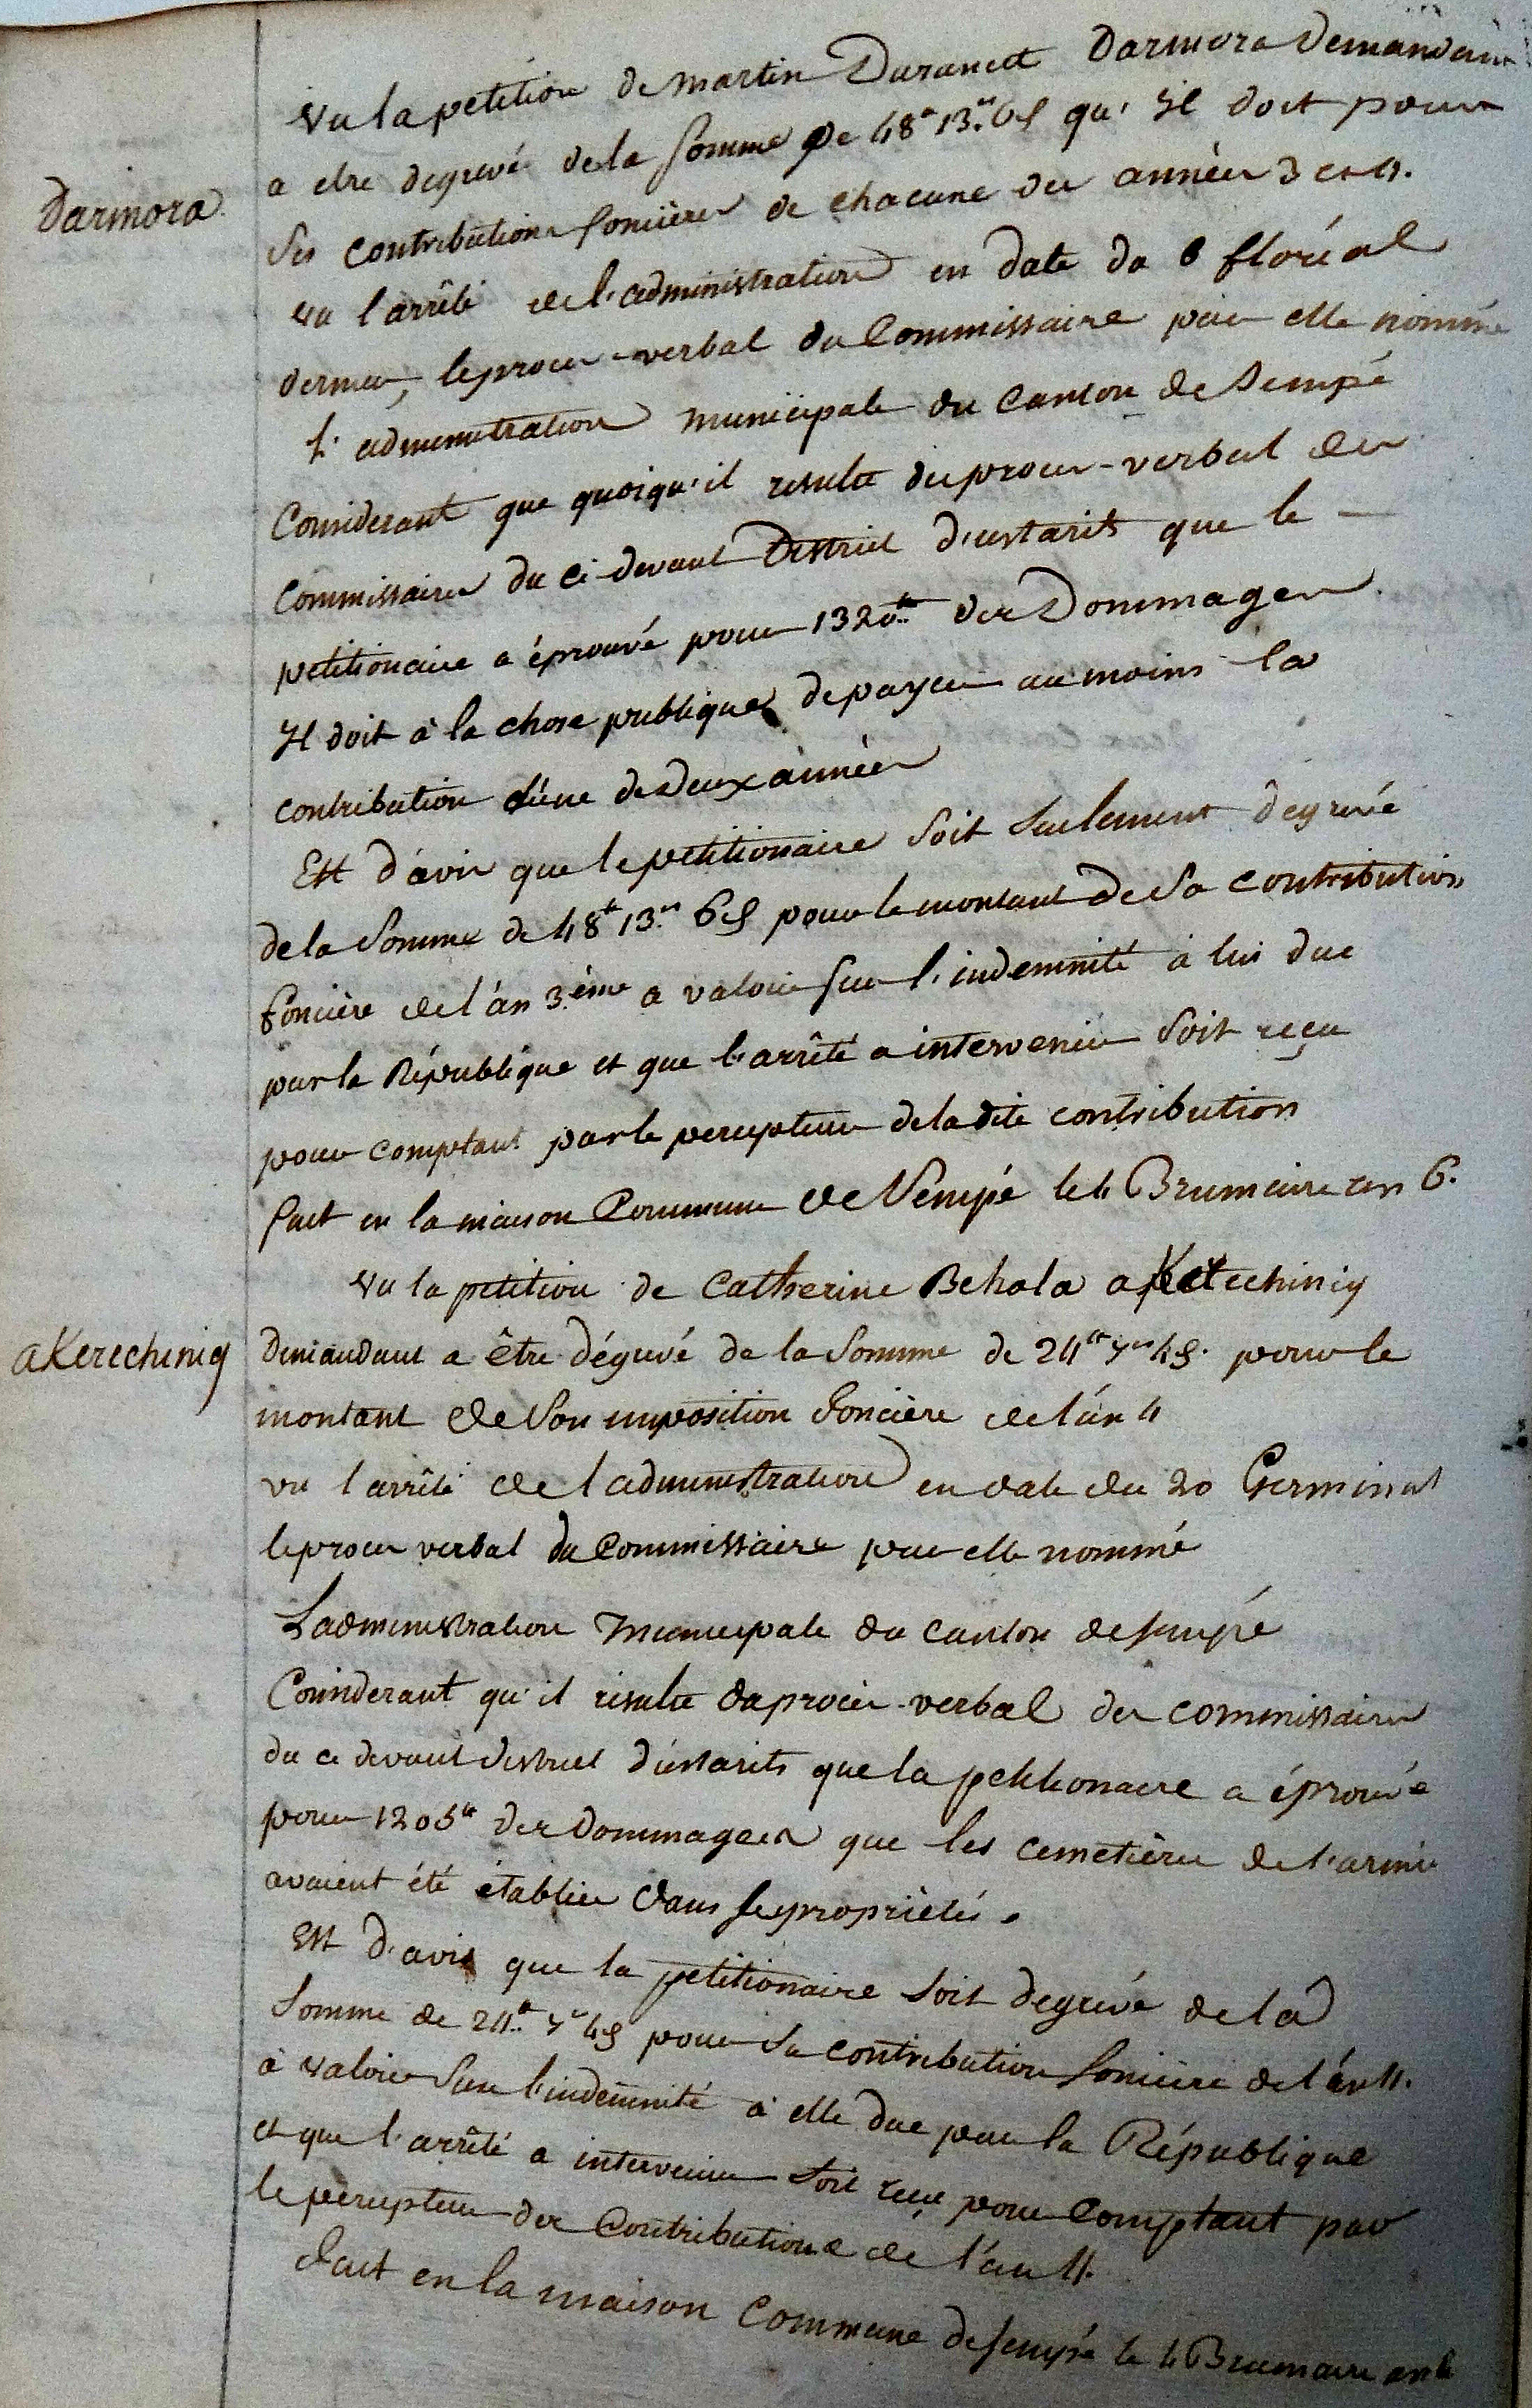 Vu la petition de Martin Duranett Darmora Demandant
a etre degrevé de la somme de 48tt 13s 6d qu'il doit pour
Darmora
ses contributions foncières de chacune des années 3 et 4.
vu l'arrêté de l'administration en date du 8 floréal
dernier, le proces-verbal du Commissaire par elle nommé
L'administration Municipale du Canton de Sempé
Considerant que quoiqu'il resulte du proces-verbal des
Commissaires du ci-devant District d'ustarits que le —
petitionaire a éprouvé pour 1320tt des Dommages
Il doit à la chose publique de payer au moins la
contribution d'une des deux années
Est d'avis que le petitionaire soit seulement degrevé
de la somme de 48tt 13s 6d pour le montant de sa contribution
foncière de l'an 3ème a valoir sur l'indemnité à lui due
par la République et que l'arrêté a intervenir soit reçu
pour comptant par le percepteur de la dite contribution
fait en la maison Commune de Sempé le 4 Brumaire an 6.
Vu la petition de Catherine Behola a Ketechinig
aKerechinig
Demandant a être dégrevé de la somme de 24tt 7s 4d. pour le
montant de son imposition foncière de l'an 4
vu l'arrêté de l'administration en date du 20 Germinal
le proces verbal du Commissaire par elle nommé
L'administration Municipale du canton de sempé
Considerant qu'il resulte du proces-verbal des commissaires
du ci devant district d'ustarits que la petitionaire a éprouvé
pour 1205tt des dommages que les cemetières de l'armée
avaient été établies dans ses propriétés.
Est d'avis que la petitionaire soit degrevé de la
somme de 24tt 7s 4d pour sa contribution foncière de l'an 4.
à valoir sur l'indemnité à elle due par la République
et que l'arrêté a intervenir soit reçu pour comptant par
le percepteur des Contributions de l'an 4.
fait en la maison Commune de sempé le 4 Brumaire an 6